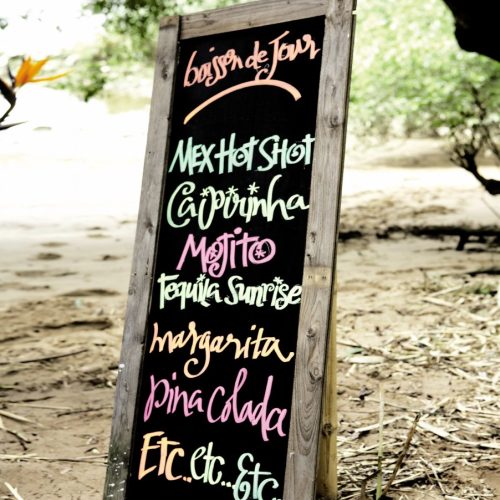 boisson de Jour
MEX HOT SHOT
Caipirinha
Mojito
Tequila Sunrise
margarita
pina Colada
Etc.. etc... Etc..